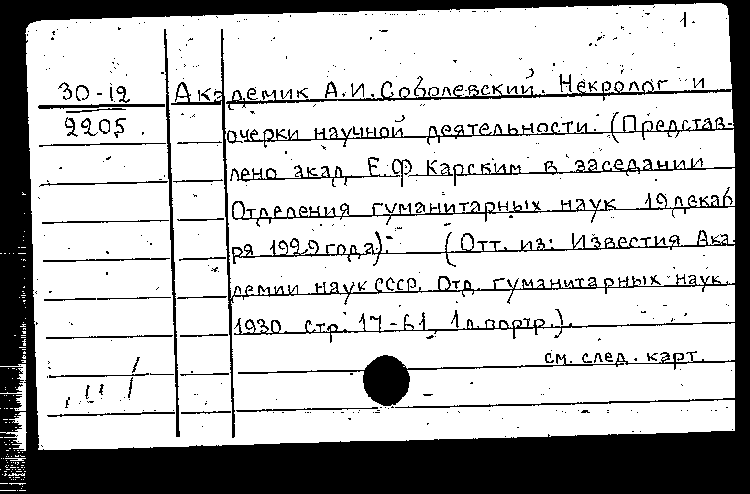 1.
30-12 Академик А.И.Соболевский. Некролог и
2205. очерки научной деятельности. (Представ-
лено акад. Е.Ф Карским в заседании
Отделения гуманитарных наук 19 декаб
ря 1929 года). (Отт. из: Известия Ака-
демии наук СССР. Отд. гуманитарных наук.
1930. стр. 17-61, 1 л. портр.).
см. след. карт.